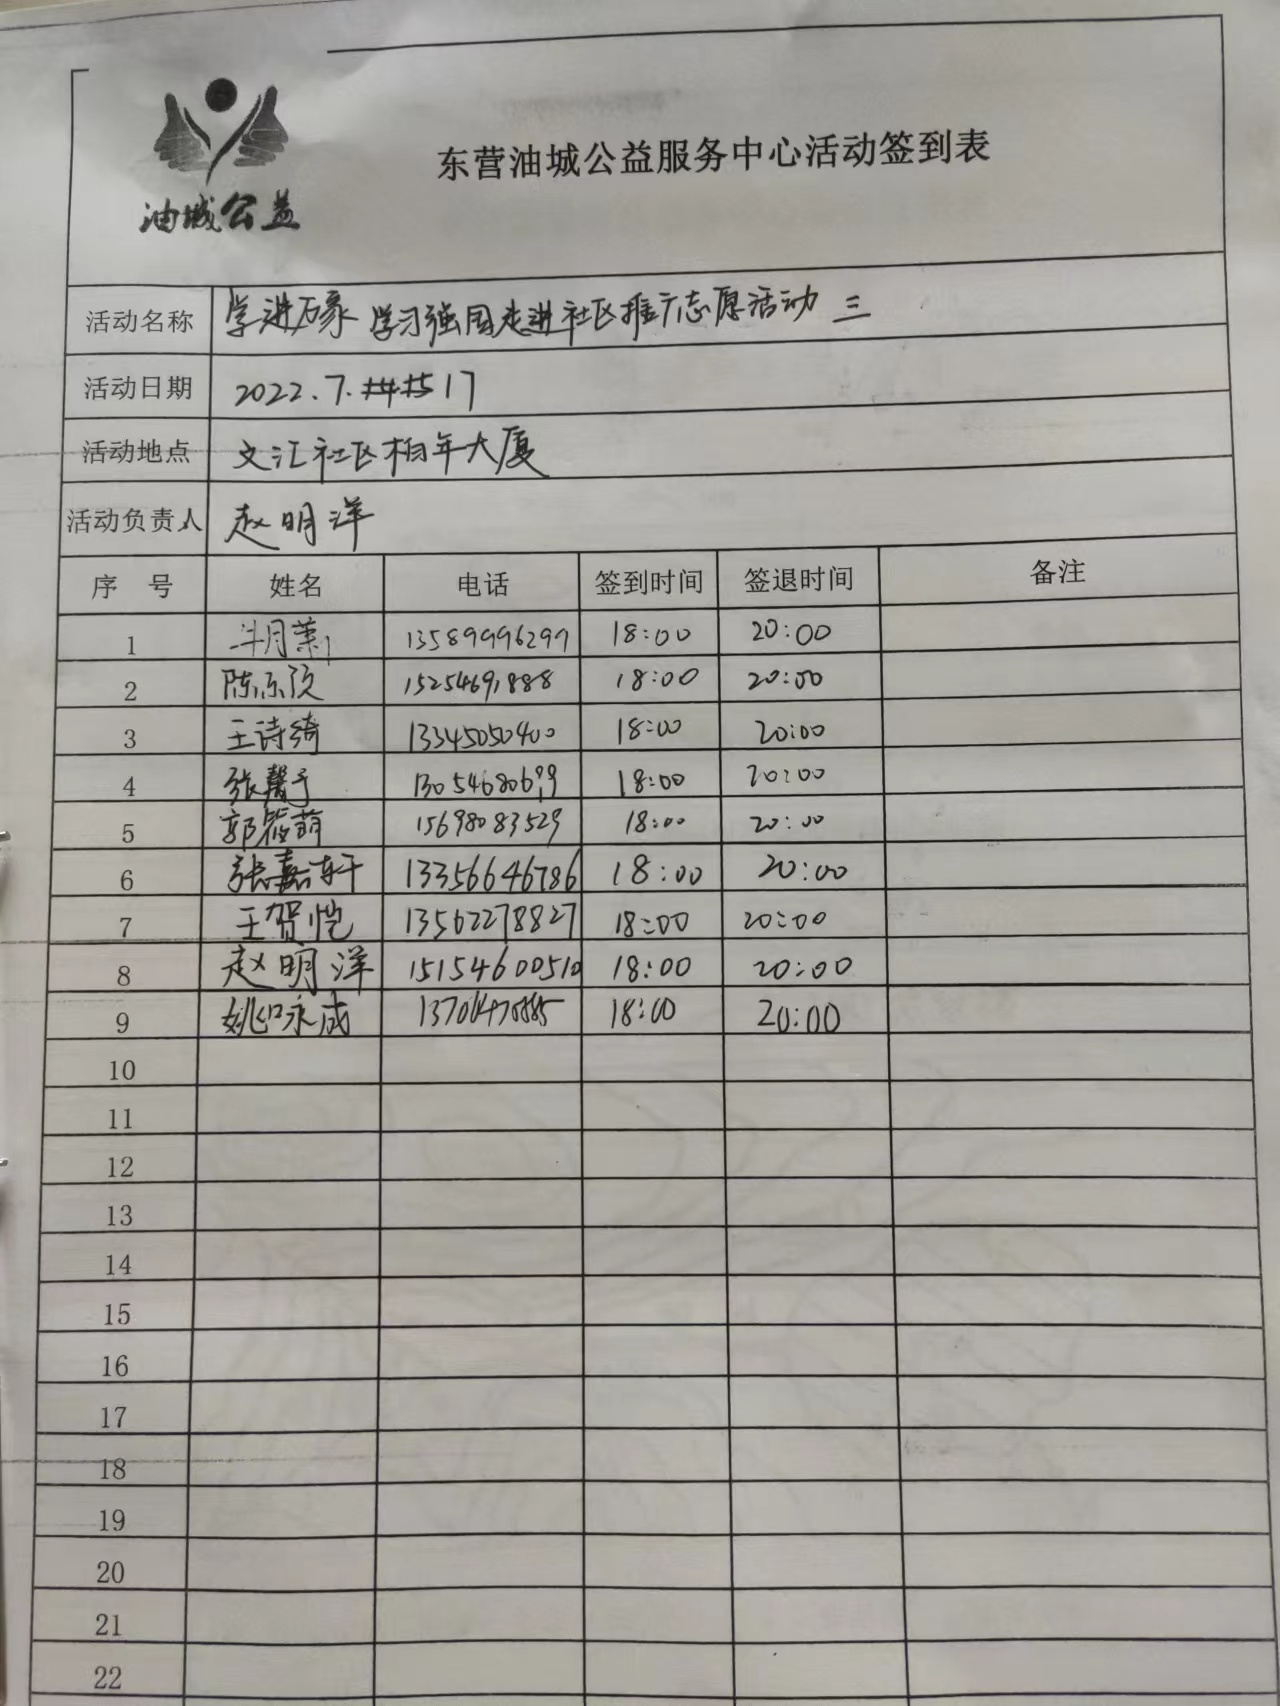 油城公益
东营油城公益服务中心活动签到表
活动名称 学进万家 学习强国走进社区推广志愿活动 三
活动日期 2022.7.17
活动地点 文汇社区柏年大厦
活动负责人 赵明洋
序号 姓名 电话 签到时间 签退时间 备注
1 13589996299 18:00 20:00
2 15254691888 18:00 20:00
3 王诗绮 13345050400 18:00 20:00
4 张馨予 18:00 20:00
5 郭筱萌 15698083529 18:00 20:00
6 张嘉轩 13356646786 18:00 20:00
7 王贺恺 13562278827 18:00 20:00
8 赵明洋 15154600510 18:00 20:00
9 18:00 20:00
10
11
12
13
14
15
16
17
18
19
20
21
22